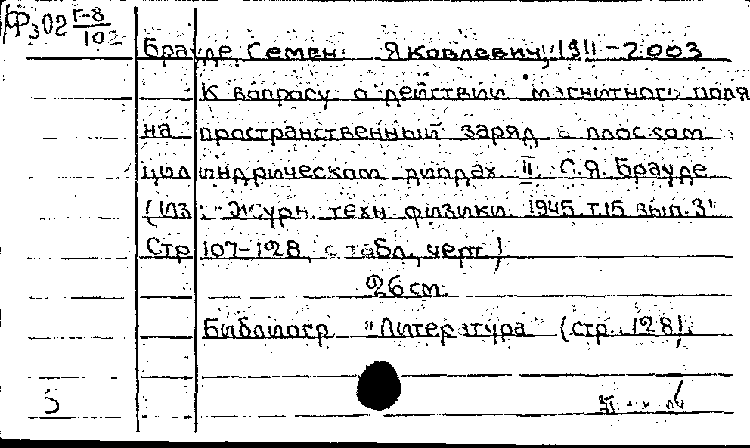 Фз02 Г-8/102
Брауде, Семен Яковлевич, 1911-2003
К вопросу о действии магнитного поля
на пространственный заряд в плоском
цилиндрическом диодах II. С.Я. Брауде
(Из: "Журн. техн. физики. 1945. т.15 вып.3"
Стр 107-128, с табл., черт.)
26 см.
Библиогр "Литература" (стр. 128).
5